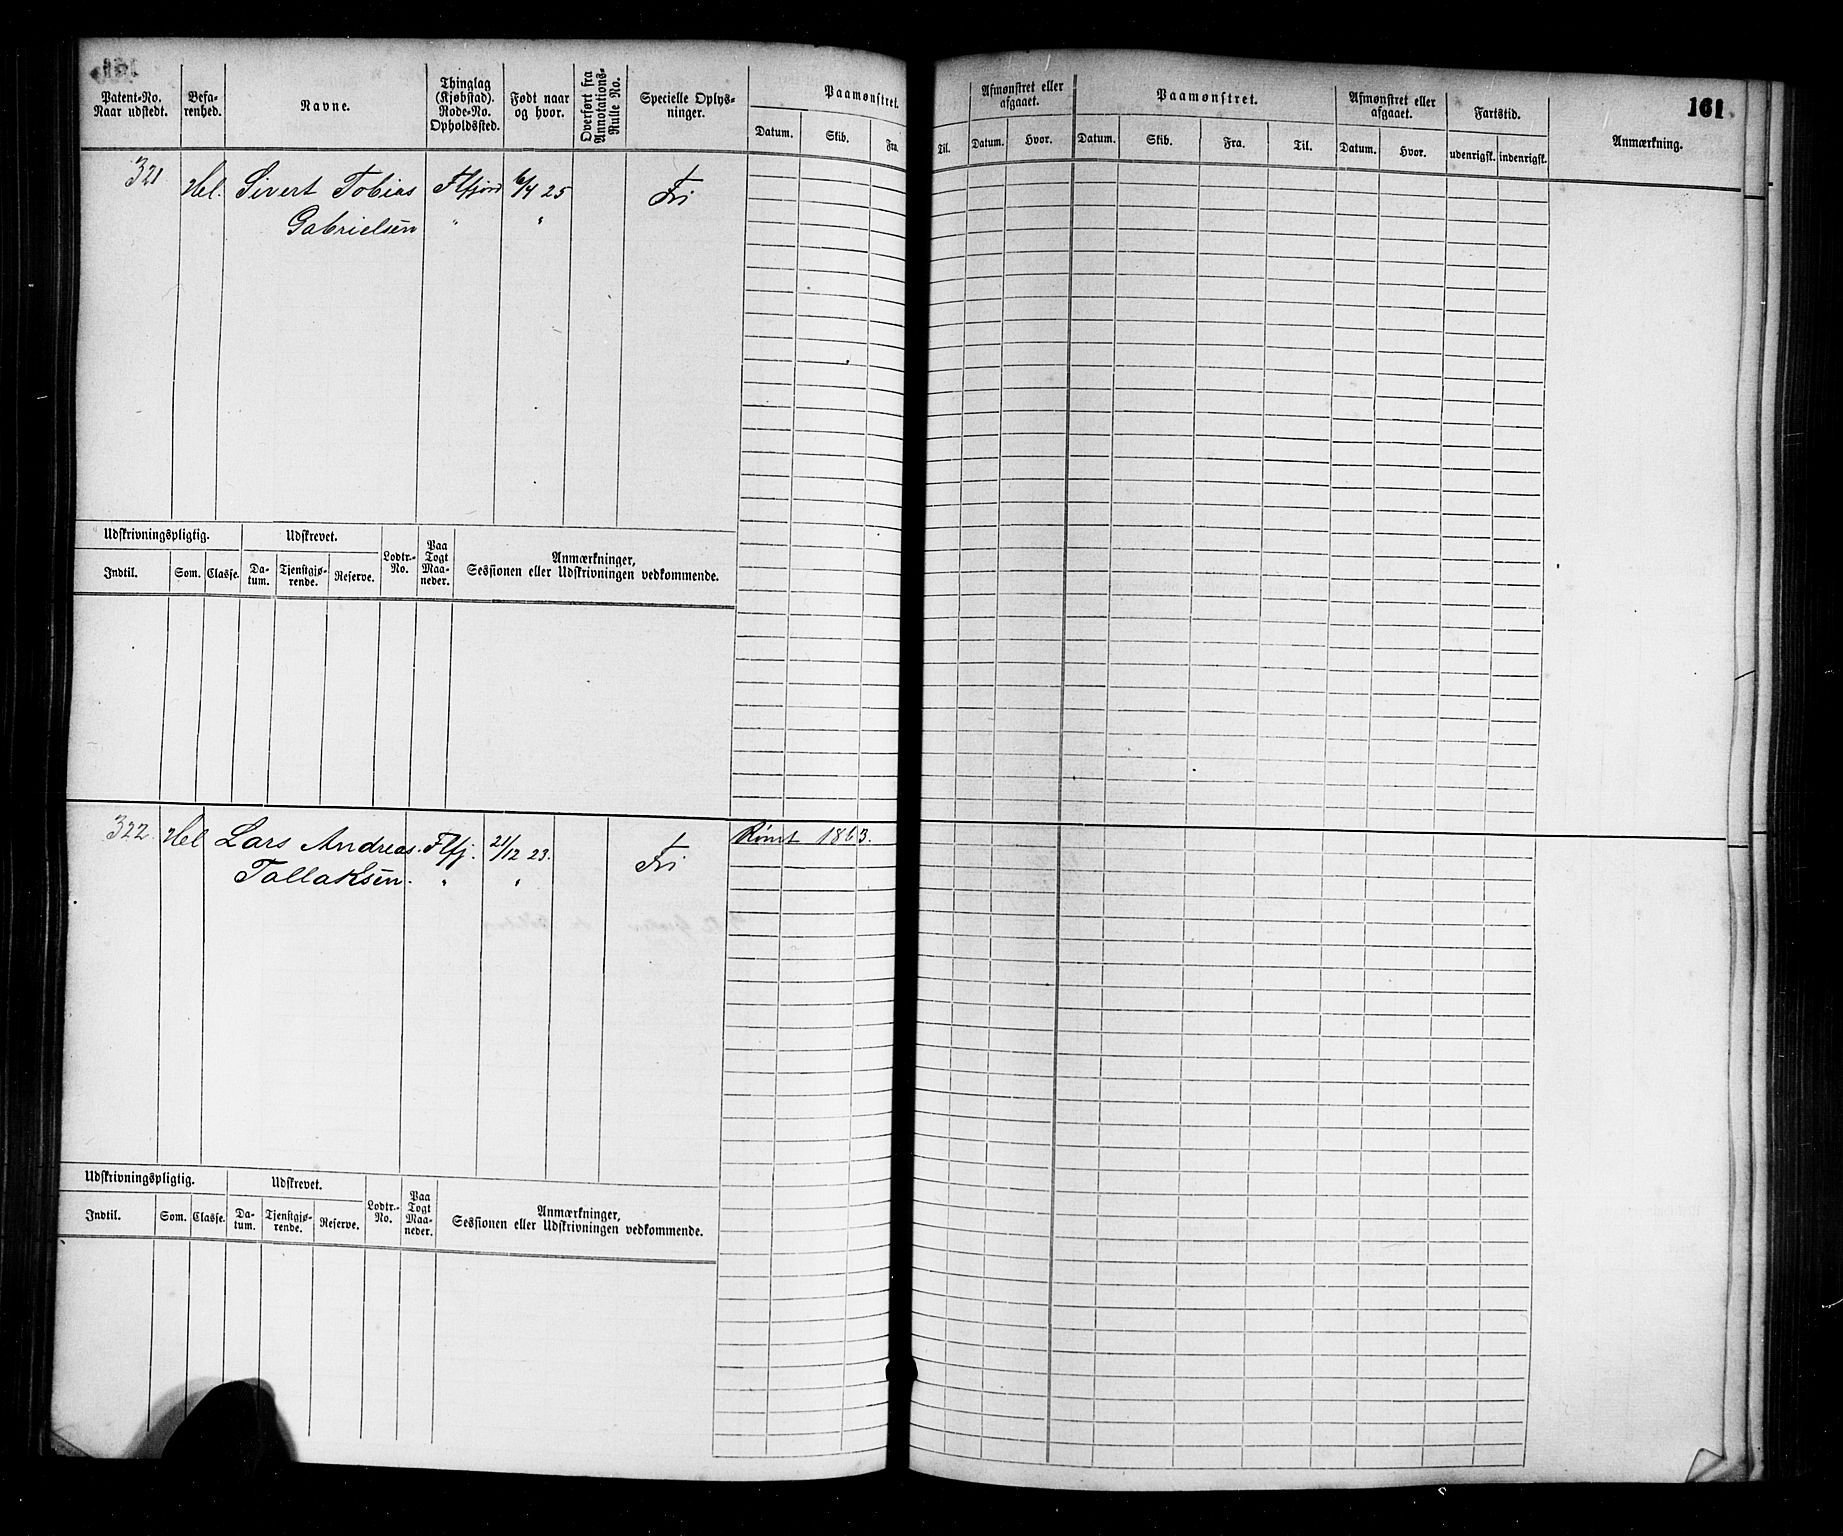 161
Patent-No.
Naar udstedt.
Befa-
renhed.
Navne.
Thinglag
(Kjøbstad).
Rode-No.
Opholdssted.
Født naar
og hvor.
Overført fra
Annotations-
Rulle No.
Specielle Oplys-
ninger.
Paamønstret.
Datum. Skib. Fra.
Til.
Afmønstret eller
afgaaet.
Datum. Hvor.
Paamønstret.
Datum. Skib. Fra. Til.
Afmønstret eller
afgaaet.
Datum. Hvor.
Fartstid.
udenrigsk. indenrigsk.
Anmærkning.
321 Hel. Sivert Tobias Flfjord 6/4 25 Fri
Gabrielsen " "
Udskrivningspligtig. Udskrevet.
Indtil. Som. Classe.
Da-
tum.
Tjenstgjø-
rende.
Reserve.
Lodtr.-
No.
Paa
Togt
Maa-
neder.
Anmærkninger,
Sessionen eller Udskrivningen vedkommende.
322. Hel Lars Andreas Flfj. 21/12 23. Fri Rømt 1863.
Tallaksen. " "
Udskrivningspligtig. Udskrevet.
Indtil. Som. Classe.
Da-
tum.
Tjenstgjø-
rende.
Reserve.
Lodtr.-
No.
Paa
Togt
Maa-
neder.
Anmærkninger,
Sessionen eller Udskrivningen vedkommende.